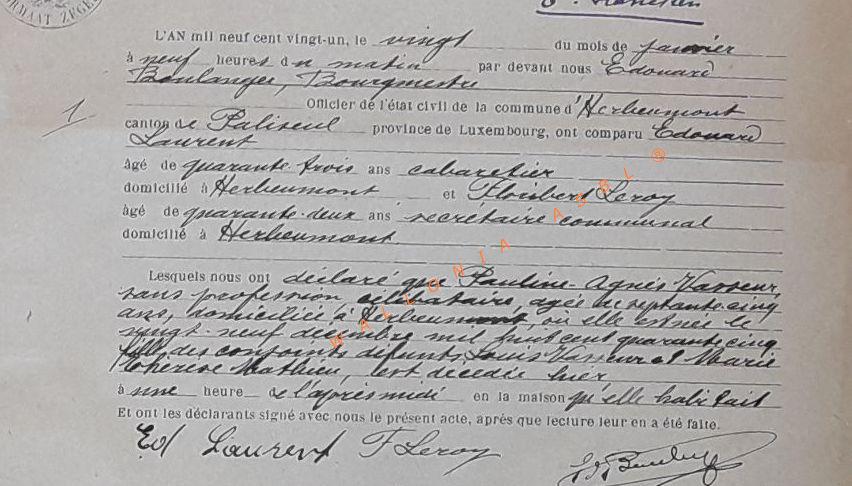 L'AN mil neuf cent vingt-un, le vingt du mois de janvier
à neuf heures du matin par devant nous Edouard
Boulanger, Bourgmestre
1
Officier de l'état civil de la commune d'Herbeumont
canton de Paliseul province de Luxembourg, ont comparu Edouard
Laurent
âgé de quarante-trois ans cabaretier
domicilié à Herbeumont et Floribert Leroy
âgé de quarante-deux ans secrétaire communal
domicilié à Herbeumont
Lesquels nous ont déclaré que Pauline-Agnès Vasseur,
sans profession célibataire, agée de septante-cinq
ans, domiciliée à Herbeumont, où elle est née le
vingt-neuf décembre mil huit cent quarante cinq
fille des conjoints défunts Louis Vasseur et Marie
Thérèse Mathieu, est décédée hier
à une heure de l'après midi en la maison qu'elle habitait
Et ont les déclarants signé avec nous le présent acte, après que lecture leur en a été faite.
Ed Laurent F Leroy
WALLONIA ASBL ®